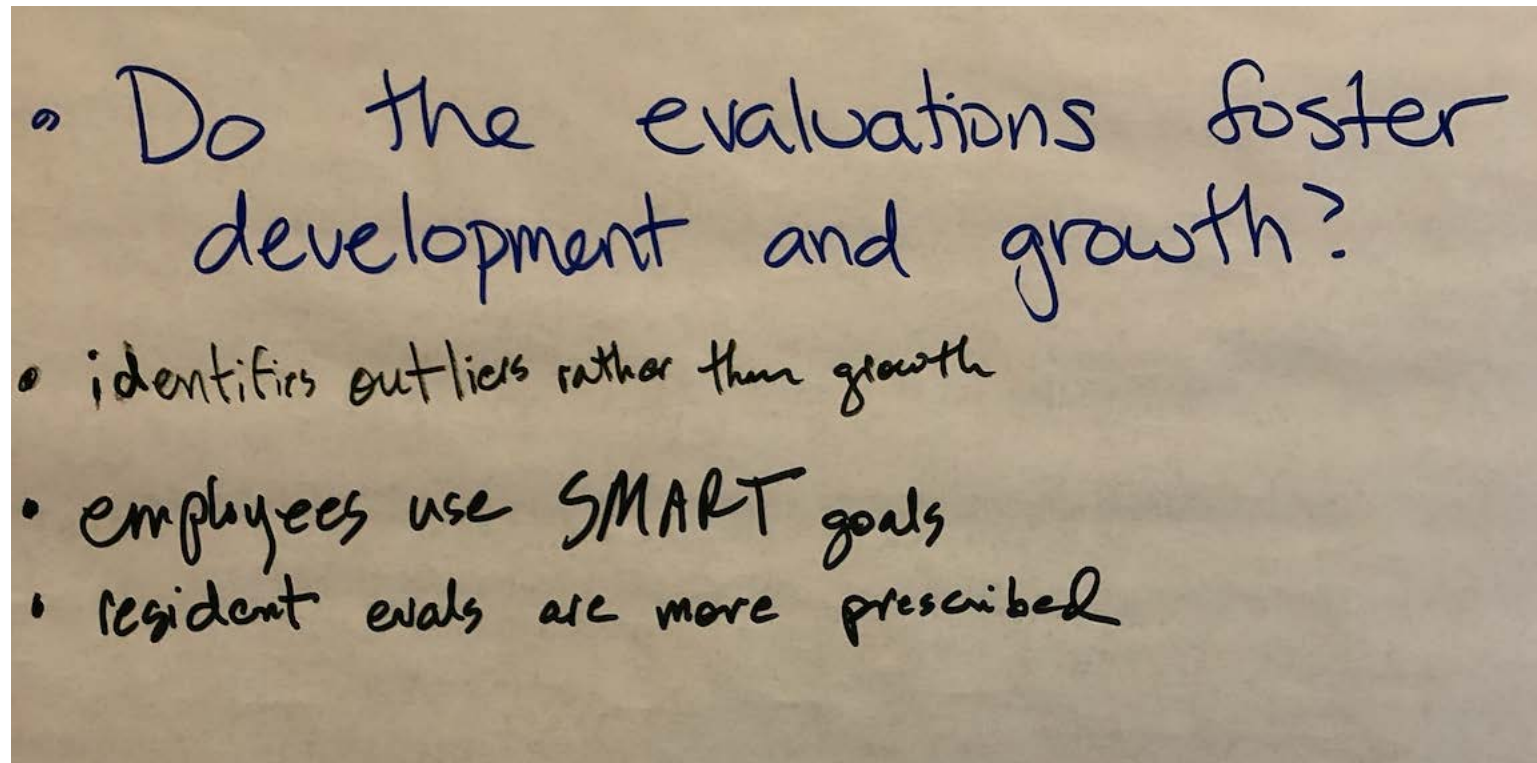 • Do the evaluations foster
development and growth?
• identifies outliers rather than growth
• employees use SMART goals
• resident evals are more prescribed